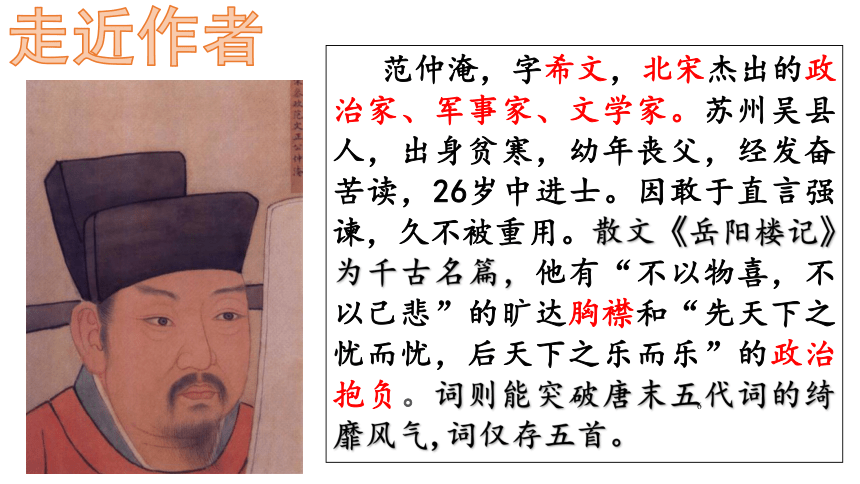 走近作者
范仲淹，字希文，北宋杰出的政
治家、军事家、文学家。苏州吴县
人，出身贫寒，幼年丧父，经发奋
苦读，26岁中进士。因敢于直言强
谏，久不被重用。散文《岳阳楼记》
为千古名篇，他有“不以物喜，不
以己悲”的旷达胸襟和“先天下之
忧而忧，后天下之乐而乐”的政治
抱负。词则能突破唐末五代词的绮
靡风气,词仅存五首。